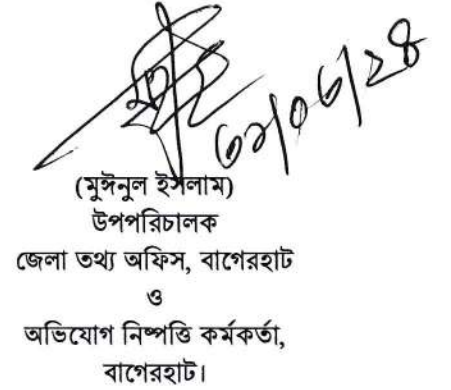 (মুঈনুল ইসলাম)
উপপরিচালক
জেলা তথ্য অফিস, বাগেরহাট
ও
অভিযোগ নিষ্পত্তি কর্মকর্তা,
বাগেরহাট।